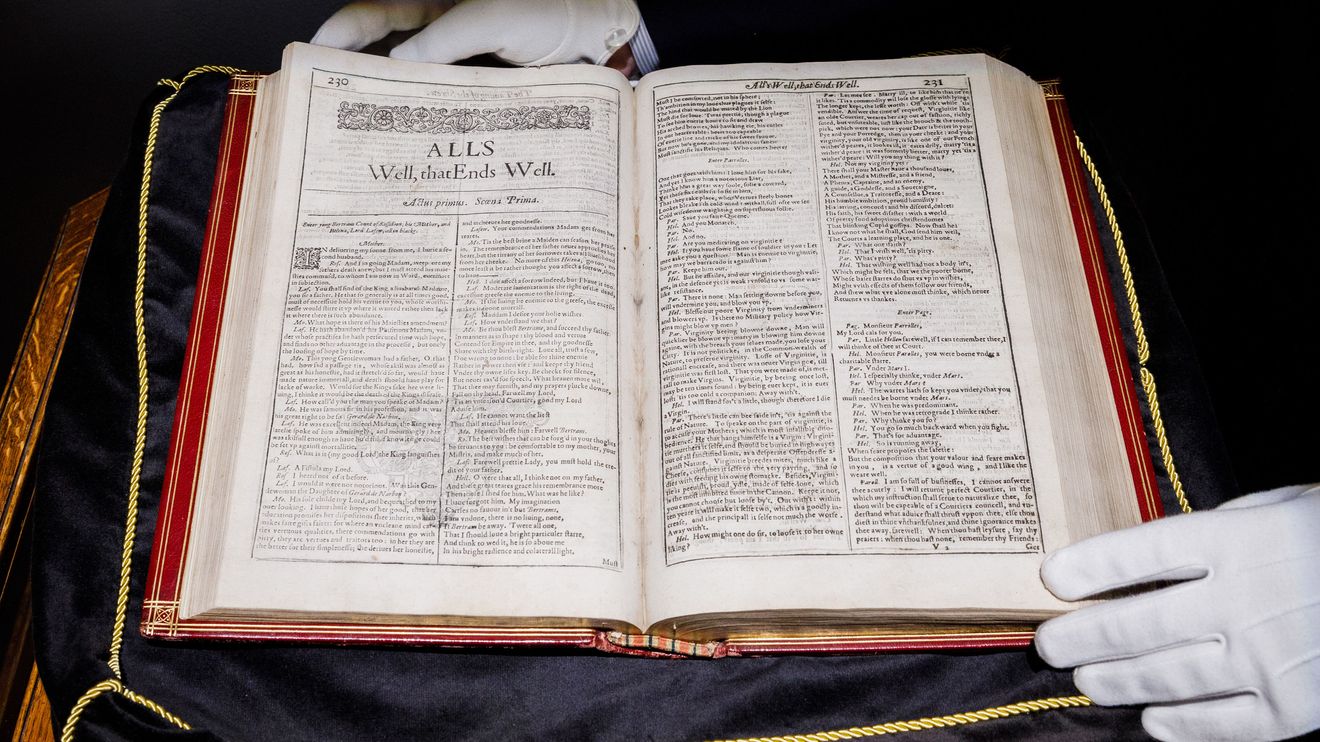 230
ALLS
Well, that Ends Well.
Actus primus. Scœna Prima.
Enter yong Bertram Count of Roſſillion, his Mother, and
Helena, Lord Lafew, all in blacke.
Mother.
IN deliuering my ſonne from me, I burie a ſe-
cond husband.
Roſ. And I in going Madam, weep ore my
fathers death anew; but I muſt attend his maie-
ſties command, to whom I am now in Ward, euermore
in ſubiection.
Laf. You ſhall find of the King a husband Madame,
you ſir a father. He that ſo generally is at all times good,
muſt of neceſſitie hold his vertue to you, whoſe worthi-
neſſe would ſtirre it vp where it wanted rather then lack
it where there is ſuch abundance.
Mo. What hope is there of his Maieſties amendment?
Laf. He hath abandon'd his Phiſitions Madam, vn-
der whoſe practiſes he hath perſecuted time with hope,
and finds no other aduantage in the proceſſe, but onely
the looſing of hope by time.
Mo. This yong Gentlewoman had a father, O that
had, how ſad a paſſage tis, whoſe skill was almoſt as
great as his honeſtie, had it ſtretch'd ſo far, would haue
made nature immortall, and death ſhould haue play for
lacke of worke. Would for the Kings ſake hee were li-
uing, I thinke it would be the death of the Kings diſeaſe.
Laf. How call'd you the man you ſpeake of Madam?
Mo. He was famous ſir in his profeſsion, and it was
his great right to be ſo: Gerard de Narbon.
Laf. He was excellent indeed Madam, the King very
latelie ſpoke of him admiringly, and mourningly: hee
was skilfull enough to haue liu'd ſtil, if knowledge could
be ſet vp againſt mortallitie.
Roſ. What is it (my good Lord) the King languiſhes
of?
Laf. A Fiſtula my Lord.
Roſ. I heard not of it before.
Laf. I would it were not notorious. Was this Gen-
tlewoman the Daughter of Gerard de Narbon?
Mo. His ſole childe my Lord, and bequeathed to my
ouer looking. I haue thoſe hopes of her good, that her
education promiſes her diſpoſitions ſhee inherits, which
makes faire gifts fairer: for where an vncleane mind car-
ries vertuous qualities, there commendations go with
pitty, they are vertues and traitors too: in her they are
the better for their ſimpleneſſe; ſhe deriues her honeſtie,
and atcheeues her goodneſſe.
Lafew. Your commendations Madam get from her
teares.
Mo. 'Tis the beſt brine a Maiden can ſeaſon her praiſe
in. The remembrance of her father neuer approches her
heart, but the tirrany of her ſorrowes takes all liuelihood
from her cheeke. No more of this Helena, go too, no
more leaſt it be rather thought you affect a ſorrow, then
to haue------
Hell. I doe affect a ſorrow indeed, but I haue it too.
Laf. Moderate lamentation is the right of the dead,
exceſſiue greefe the enemie to the liuing.
Mo. If the liuing be enemie to the greefe, the exceſſe
makes it ſoone mortall.
Roſ. Maddam I deſire your holie wiſhes.
Laf. How vnderſtand we that?
Mo. Be thou bleſt Bertrame, and ſucceed thy father
in manners as in ſhape: thy blood and vertue
Contend for Empire in thee, and thy goodneſſe
Share with thy birth-right. Loue all, truſt a few,
Doe wrong to none: be able for thine enemie
Rather in power then vſe: and keepe thy friend
Vnder thy owne lifes key. Be checkt for ſilence,
But neuer tax'd for ſpeech. What heauen more wil,
That thee may furniſh, and my prayers plucke downe,
Fall on thy head. Farwell my Lord,
'Tis an vnſeaſon'd Courtier, good my Lord
Aduiſe him.
Laf. He cannot want the beſt
That ſhall attend his loue.
Mo. Heauen bleſſe him: Farwell Bertram.
Ro. The beſt wiſhes that can be forg'd in your thoghts
be ſeruants to you: be comfortable to my mother, your
Miſtris, and make much of her.
Laf. Farewell prettie Lady, you muſt hold the cre-
dit of your father.
Hell. O were that all, I thinke not on my father,
And theſe great teares grace his remembrance more
Then thoſe I ſhed for him. What was he like?
I haue forgott him. My imagination
Carries no fauour in't but Bertrams.
I am vndone, there is no liuing, none,
If Bertram be away. 'Twere all one,
That I ſhould loue a bright particuler ſtarre,
And think to wed it, he is ſo aboue me
In his bright radience and colaterall light,
Muſt
All's Well, that Ends Well.
231
Muſt I be comforted, not in his ſphere;
Th'ambition in my loue thus plagues it ſelfe:
The hind that would be mated by the Lion
Muſt die for loue. 'Twas prettie, though a plague
To ſee him euerie houre to ſit and draw
His arched browes, his hawking eie, his curles
In our hearts table: heart too capeable
Of euerie line and tricke of his ſweet fauour.
But now he's gone, and my idolatrous fancie
Muſt ſanctifie his Reliques. Who comes heere?
Enter Parrolles.
One that goes with him: I loue him for his ſake,
And yet I know him a notorious Liar,
Thinke him a great way foole, ſolie a coward,
Yet theſe fixt euils ſit ſo fit in him,
That they take place, when Vertues ſteely bones
Lookes bleake i'th cold wind: withall, full ofte we ſee
Cold wiſedome waighting on ſuperfluous follie.
Par. Saue you faire Queene.
Hel. And you Monarch.
Par. No.
Hel. And no.
Par. Are you meditating on virginitie?
Hel. I: you haue ſome ſtaine of ſouldier in you: Let
mee aske you a queſtion. Man is enemie to virginitie,
how may we barracado it againſt him?
Par. Keepe him out.
Hel. But he aſſailes, and our virginitie though vali-
ant, in the defence yet is weak: vnfold to vs ſome war-
like reſiſtance.
Par. There is none: Man ſetting downe before you,
will vndermine you, and blow you vp.
Hel. Bleſſe our poore Virginity from vnderminers
and blowers vp. Is there no Military policy how Vir-
gins might blow vp men?
Par. Virginity beeing blowne downe, Man will
quicklier be blowne vp: marry in blowing him downe
againe, with the breach your ſelues made, you loſe your
Citty. It is not politicke, in the Common-wealth of
Nature, to preſerue virginity. Loſſe of Virginitie, is
rationall encreaſe, and there was neuer Virgin goe, till
virginitie was firſt loſt. That you were made of, is met-
tall to make Virgins. Virginitie, by beeing once loſt,
may be ten times found: by being euer kept, it is euer
loſt: 'tis too cold a companion: Away with't.
Hel. I will ſtand for't a little, though therefore I die
a Virgin.
Par. There's little can bee ſaide in't, 'tis againſt the
rule of Nature. To ſpeake on the part of virginitie, is
to accuſe your Mothers; which is moſt infallible diſo-
bedience. He that hangs himſelfe is a Virgin: Virgini-
tie murthers it ſelfe, and ſhould be buried in highwayes
out of all ſanctified limit, as a deſperate Offendreſſe a-
gainſt Nature. Virginitie breedes mites, much like a
Cheeſe, conſumes it ſelfe to the very payring, and ſo
dies with feeding his owne ſtomacke. Beſides, Virgini-
tie is peeuiſh, proud, ydle, made of ſelfe-loue, which
is the moſt inhibited ſinne in the Cannon. Keepe it not,
you cannot chooſe but looſe by't. Out with't: within
ten yeare it will make it ſelfe two, which is a goodly in-
creaſe, and the principall it ſelfe not much the worſe.
Away with't.
Hel. How might one do ſir, to looſe it to her owne
liking?
Par. Let mee ſee. Marry ill, to like him that ne're
it likes. 'Tis a commodity will loſe the gloſſe with lying:
The longer kept, the leſſe worth: Off with't while 'tis
vendible. Anſwer the time of requeſt, Virginitie like
an olde Courtier, weares her cap out of faſhion, richly
ſuted, but vnſuteable, iuſt like the brooch & the tooth-
pick, which were not now: your Date is better in your
Pye and your Porredge, then in your cheeke: and your
virginity, your old virginity, is like one of our French
wither'd peares, it lookes ill, it eates drily, marry 'tis a
wither'd peare: it was formerly better, marry yet 'tis a
wither'd peare: Will you any thing with it?
Hel. Not my virginity yet:
There ſhall your Maſter haue a thouſand loues,
A Mother, and a Miſtreſſe, and a friend,
A Phenix, Captaine, and an enemy,
A guide, a Goddeſſe, and a Soueraigne,
A Counſellor, a Traitoreſſe, and a Deare:
His humble ambition, proud humility:
His iarring, concord: and his diſcord, dulcet:
His faith, his ſweet diſaſter: with a world
Of pretty fond adoptious chriſtendomes
That blinking Cupid goſsips. Now ſhall he:
I know not what he ſhall, God ſend him well,
The Courts a learning place, and he is one.
Par. What one ifaith?
Hel. That I wiſh well, 'tis pitty.
Par. What's pitty?
Hel. That wiſhing well had not a body in't,
Which might be felt, that we the poorer borne,
Whoſe baſer ſtarres do ſhut vs vp in wiſhes,
Might with effects of them follow our friends,
And ſhew what we alone muſt thinke, which neuer
Returnes vs thankes.
Enter Page.
Pag. Monſieur Parrolles,
My Lord cals for you.
Par. Little Hellen farewell, if I can remember thee, I
will thinke of thee at Court.
Hel. Monſieur Parolles, you were borne vnder a
charitable ſtarre.
Par. Vnder Mars I.
Hel. I eſpecially thinke, vnder Mars.
Par. Why vnder Mars?
Hel. The warres hath ſo kept you vnder, that you
muſt needes be borne vnder Mars.
Par. When he was predominant.
Hel. When he was retrograde I thinke rather.
Par. Why thinke you ſo?
Hel. You go ſo much backward when you fight.
Par. That's for aduantage.
Hel. So is running away,
When feare propoſes the ſafetie:
But the compoſition that your valour and feare makes
in you, is a vertue of a good wing, and I like the
weare well.
Paroll. I am ſo full of buſineſſes, I cannot anſwere
thee acutely: I will returne perfect Courtier, in the
which my inſtruction ſhall ſerue to naturalize thee, ſo
thou wilt be capeable of a Courtiers councell, and vn-
derſtand what aduice ſhall thruſt vppon thee, elſe thou
dieſt in thine vnthankfulnes, and thine ignorance makes
thee away, farewell: When thou haſt leyſure, ſay thy
praiers: when thou haſt none, remember thy Friends:
V 2
Get